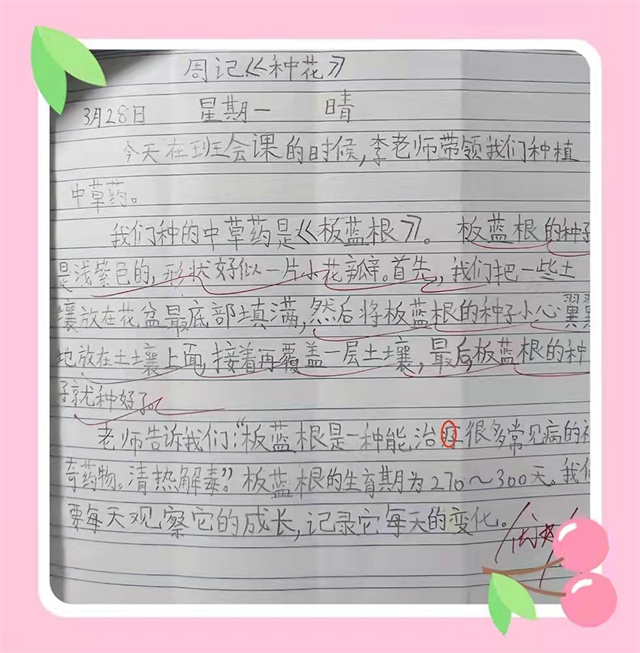 周记《种花》
3月28日 星期一 晴
今天在班会课的时候,李老师带领我们种植
中草药。
我们种的中草药是《板蓝根》。板蓝根的种子
是浅紫色的,形状好似一片小花瓣。首先,我们把一些土
壤放在花盆最底部填满,然后将板蓝根的种子小心翼翼
地放在土壤上面,接着再覆盖一层土壤,最后板蓝根的种
子就种好了。
老师告诉我们:“板蓝根是一种能治很多常见病的神
奇药物。清热解毒。”板蓝根的生育期为270~300天。我们
要每天观察它的成长,记录它每天的变化。